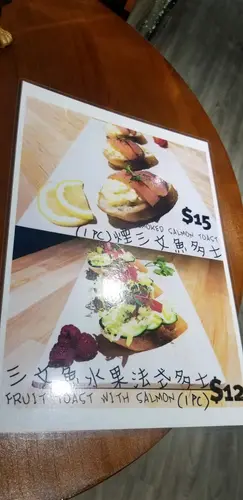 $15
SMOKED SALMON TOAST
(1PC)煙三文魚多士
三文魚水果法式多士
FRUIT TOAST WITH SALMON (1PC) $12